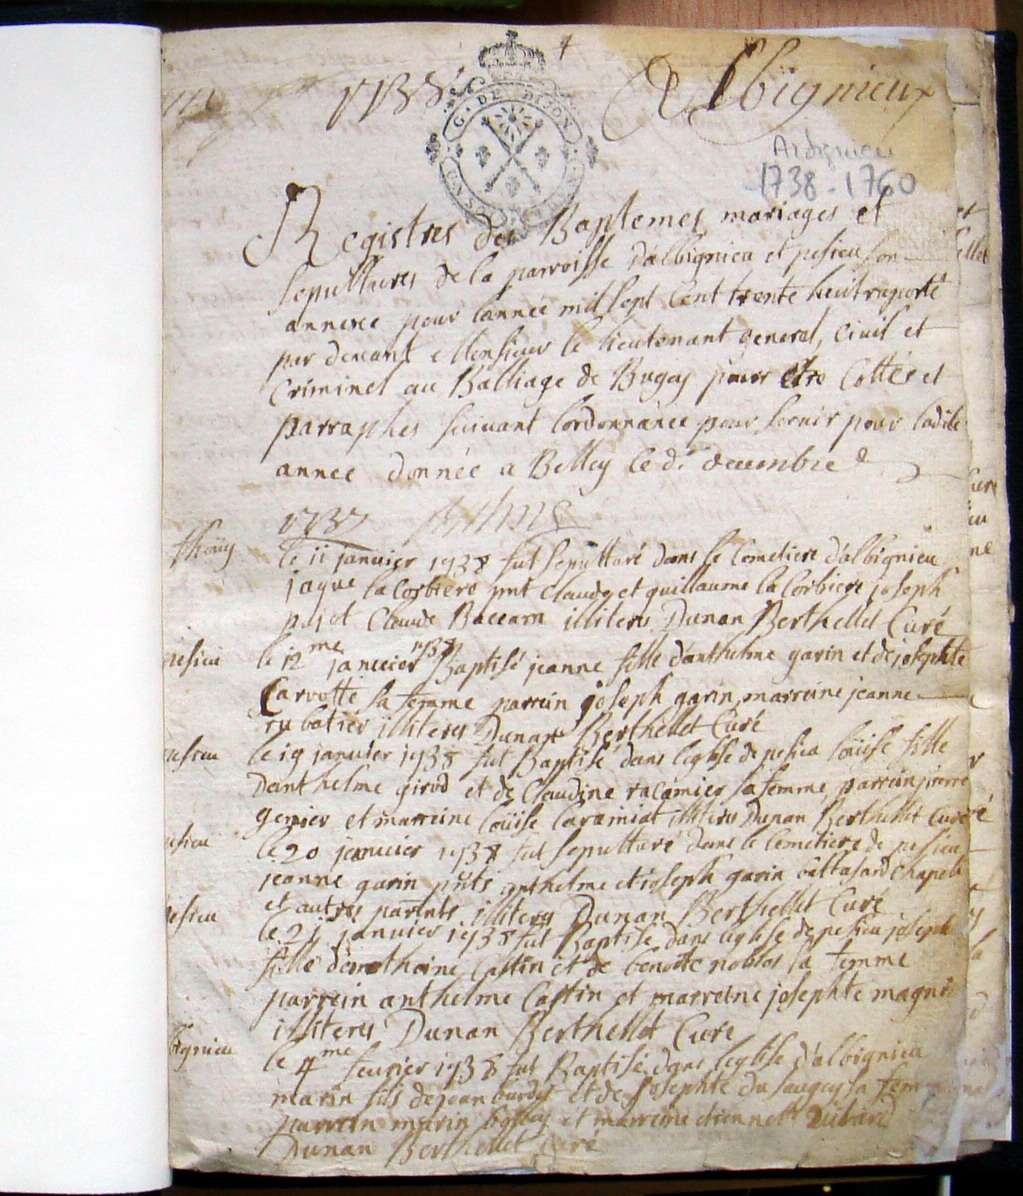 1738 Albignieu
G. DE DIJON
Ardignieu
1738-1760
Registres des Baptemes mariages et
sepultures de la parroisse d'albignieu et pesieu son
annexe pour l'année mil sept cent trente huit raporté
par devant Monsieur le lieutenant general, Civil et
Criminel au Balliage de Bugey pour etre Cottés et
parraphes suivant l'ordonnance pour servir pour ladite
annee donnée a Belley ce decembre
1737
le 11 janvier 1738 fut sepulturé dans le Cemetiere d'albignieu
jaque la Corbiere pnt Claude et guillaume la Corbiere joseph
pujot Claude illiteres Dunan Berthellet Curé
pesieu le 12me janvier 1738 Baptisé jeanne fille d'anthelme garin et de josephte
Carvotte sa femme parrein joseph garin marreine jeanne
illiteres Dunan Berthellet Curé
pesieu le 19 janvier 1738 fut Baptisé dans l'eglise de pesieu loüise fille
d'anthelme girod et de Claudine racamier sa femme, parrein pierre
genier et marreine loüise illiteres Dunan Berthellet Curé
pesieu le 20 janvier 1738 fut sepulturé dans le Cemetiere de pesieu
jeanne garin pnts anthelme et joseph garin baltasard Chapelle
et autres parents illiteres Dunan Berthellet Curé
pesieu le 21 janvier 1738 fut Baptisé dans l'eglise de pesieu joseph
fille d'anthoine Castin et de benoite nobles sa femme
parrein anthelme Castin et marreine josephte magnin
illiteres Dunan Berthellet Curé
le 4me fevrier 1738 fut Baptisé dans l'eglise d'albignieu
marin fils de jean burdet et de josephte du saugey sa fem
parrein marin et marreine etiennette
Dunan Berthellet Curé